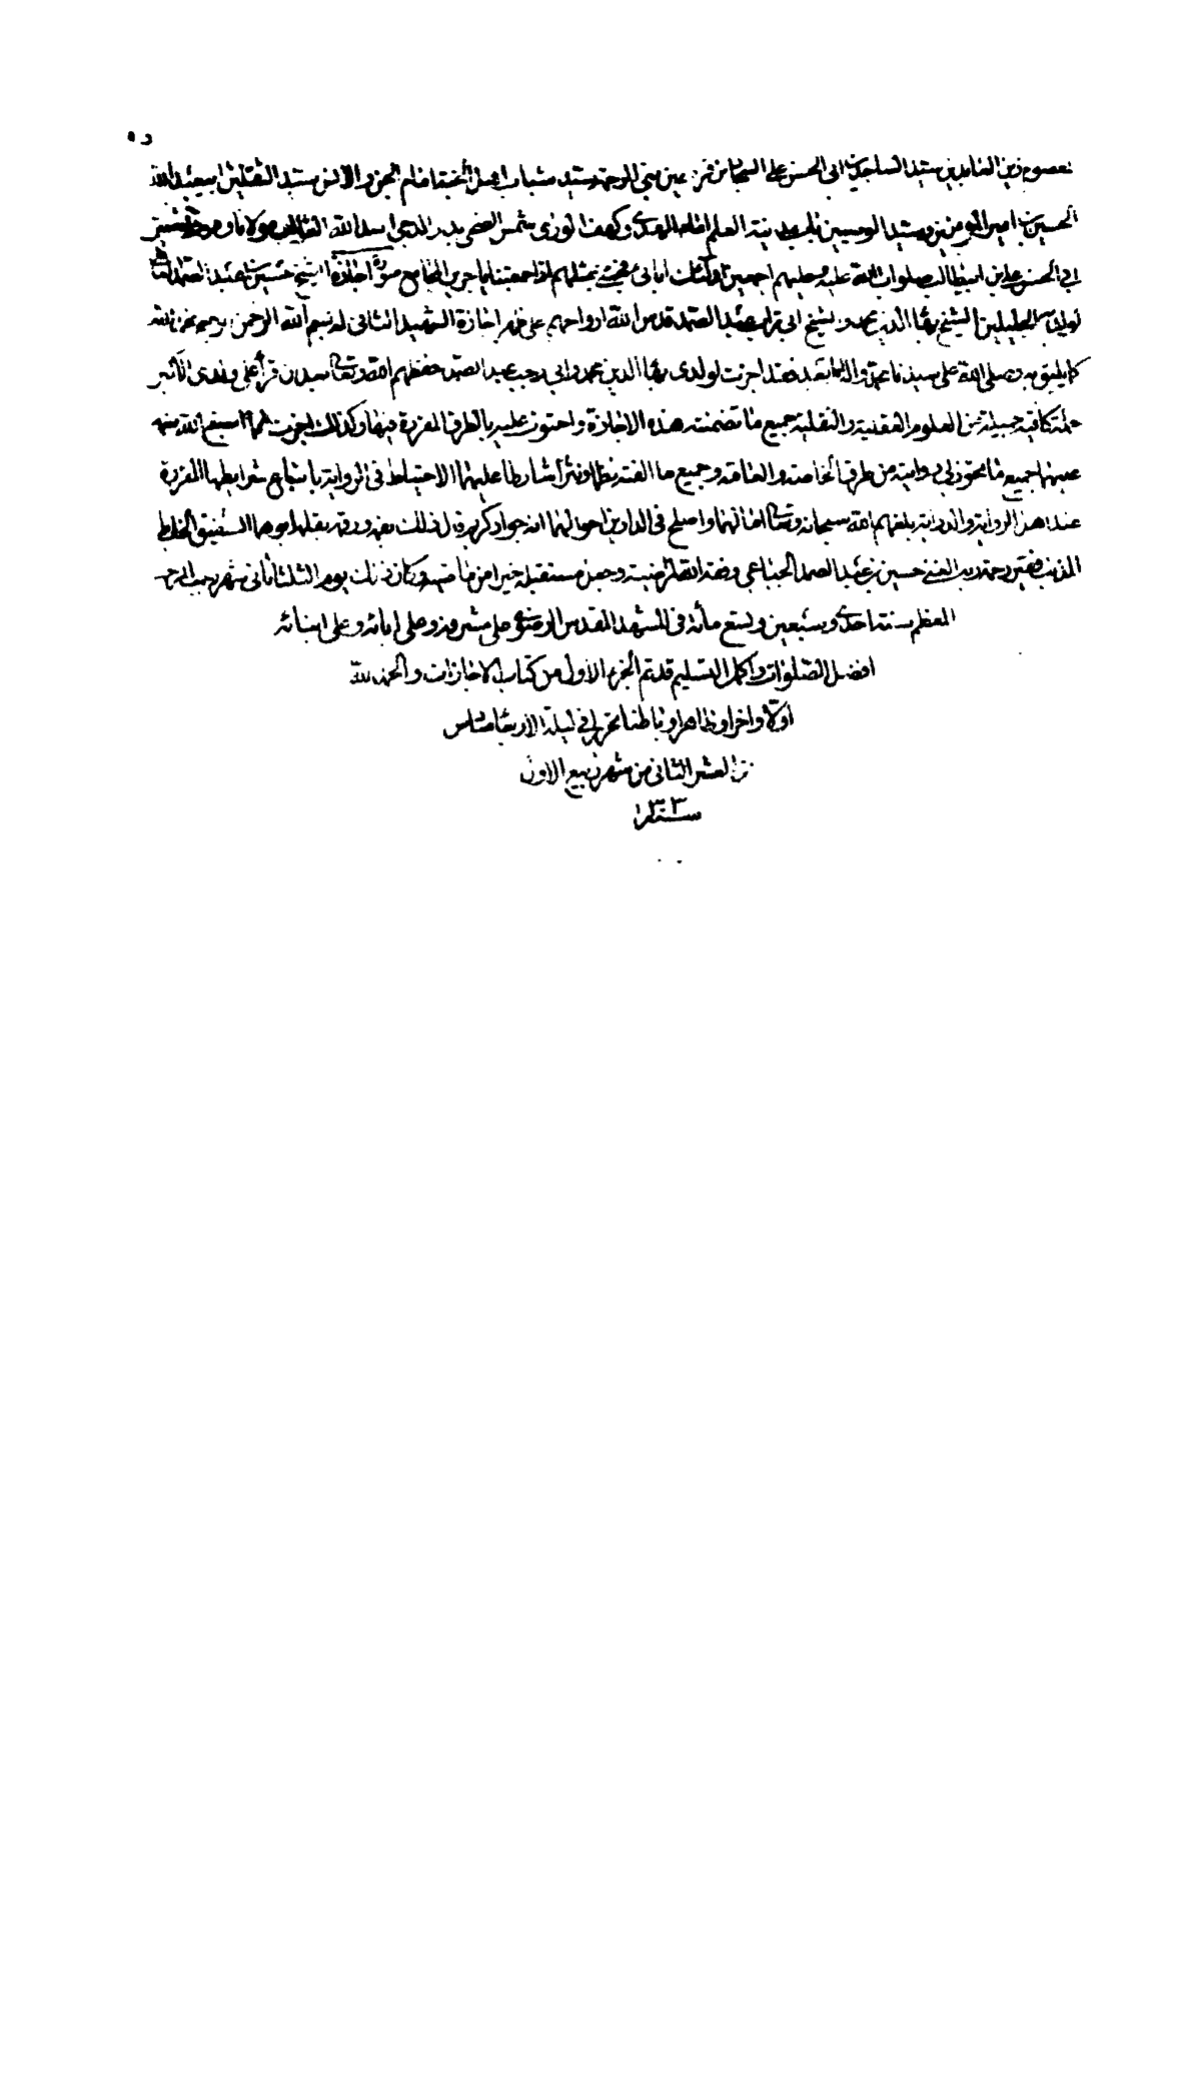 المعصوم زين العابدين سيد الساجدين ابي الحسن علي السجاد بن قرة عين نبي الرحمة وسيد شباب اهل الجنة امام الجن والانس سيد الثقلين ابيعبد الله
الحسين بن امير المؤمنين وسيد الوصيين باب مدينة العلم امام الهدى وكهف الورى شمس الضحى بدر الدجى اسد الله الغالب مولانا و
ابي الحسن علي بن ابيطالب صلوات الله عليه وعليهم اجمعين اولئك ابائي فجئني بمثلهم اذا جمعتنا يا جرير المجامع صورة اجازة الشيخ حسين بن عبد الصمد
لولديه الجليلين الشيخ بهاء الدين محمد والشيخ ابي تراب عبد الصمد قدس الله ارواحهم على ظهر اجازة الشهيد الثاني له بسم الله الرحمن الرحيم
كما يليق به وصلى الله على سيدنا محمد واله اما بعد فقد اجزت لولدي بهاء الدين محمد وابي رجب عبد الصمد حفظهم الله وتعالى بعد ان قرأ علي ولدي الاكبر
جملة كافية جميلة من العلوم العقلية والنقلية جميع ما تضمنته هذه الاجازة واحتوت عليه بالطرق المقررة فيها وكذلك اجزت لهما اسبغ الله نعمه
عليهما جميع ما يجوز لي روايته من طرق الخاصة والعامة وجميع ما الفته نظما ونثرا شارطا عليهما الاحتياط في الرواية باتباع شرايطها المقررة
عند اهل الرواية والدراية بلغهم الله سبحانه وتعالى امالهما واصلح في الدارين احوالهما انه جواد كريم قال ذلك بفمه ورقمه بقلمه ابوهما الشفيق الخاطي
المذنب فقير رحمة ربه الغني حسين بن عبد الصمد الجباعي وفقه الله لمرضيته وجعل مستقبله خيرا من ماضيه وكان ذلك يوم الثلثا ثاني شهر رجب المرجب
المعظم سنة احدى وسبعين وتسع مأة في المشهد المقدس الرضوي على مشرفه وعلى ابائه وعلى ابنائه
افضل الصلوات واكمل التسليم قد تم الجزء الاول من كتاب الاجازات والحمد لله
اولا واخرا وظاهرا وباطنا تحريرا في ليلة الاربعا سادس
من العشر الثاني من شهر ربيع الاول
سنة